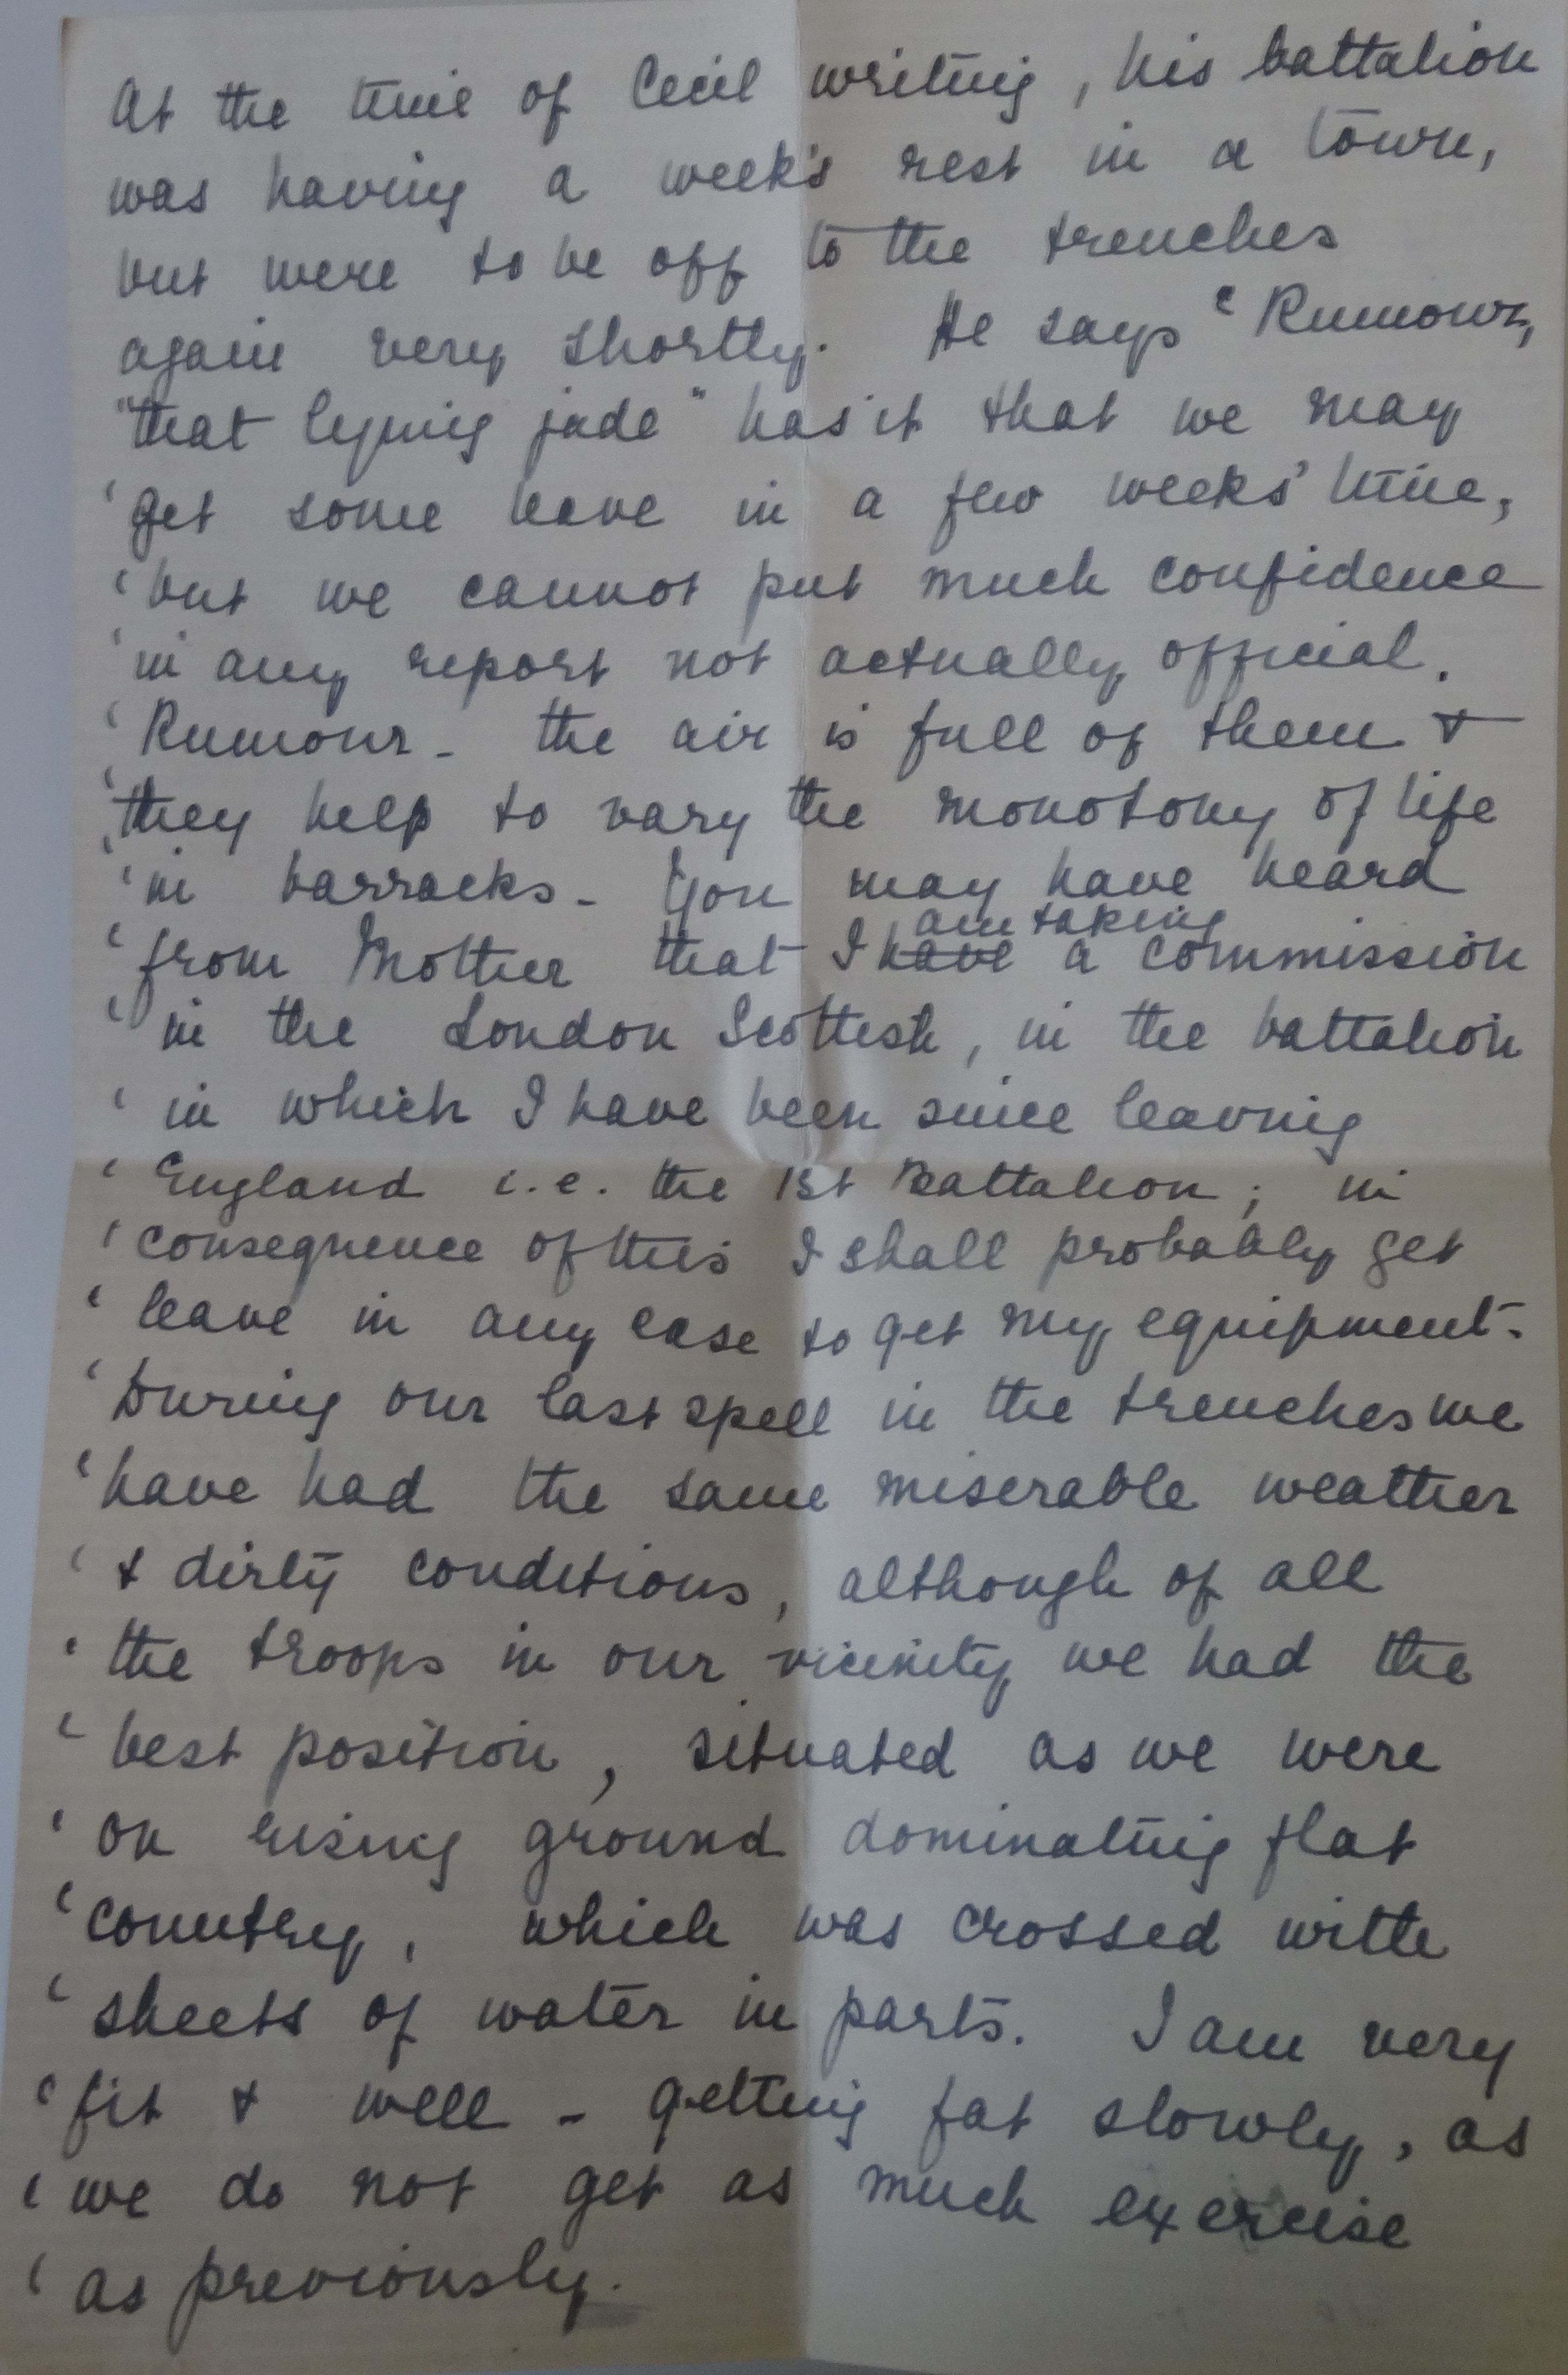 At the time of Cecil writing, his battalion
was having a week's rest in a town,
but were to be off to the trenches
again very shortly. He says ‘Rumour,
"that lying jade" has it that we may
‘get some leave in a few weeks' time,
‘but we cannot put much confidence
‘in any report not actually official.
‘Rumour - the air is full of them &
‘they help to vary the monotony of life
‘in barracks - You may have heard
‘from Mother that I have am taking a commission
‘in the London Scottish, in the battalion
‘in which I have been since leaving
‘England i.e. the 1st Battalion; in
‘consequence of this I shall probably get
‘leave in any case to get my equipment.
‘During our last spell in the trenches we
‘have had the same miserable weather
‘& dirty conditions, although of all
‘the troops in our vicinity we had the
‘best position, situated as we were
‘on rising ground dominating flat
‘country, which was crossed with
‘sheets of water in parts. I am very
‘fit & well - getting fat slowly, as
‘we do not get as much exercise
‘as previously.